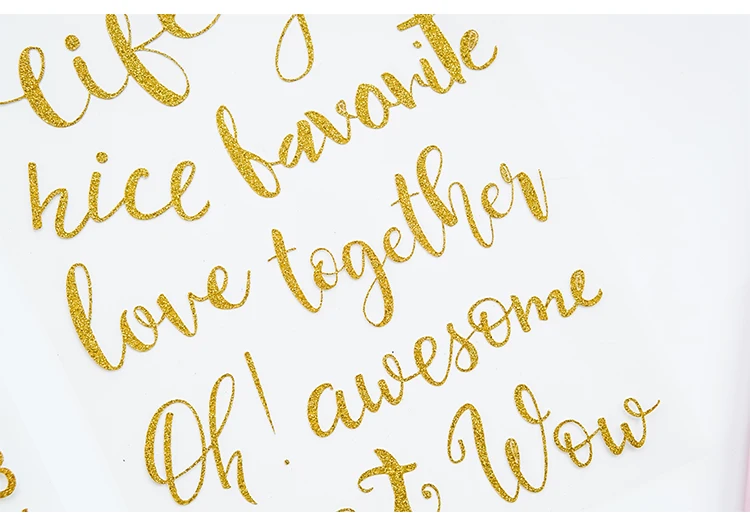 life
nice favorite
love together
Oh! awesome
Wow